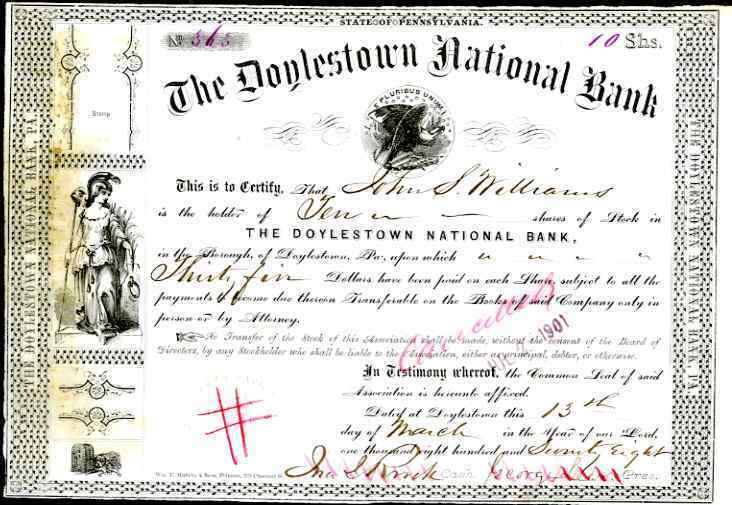 STATE OF PENNSYLVANIA.
No 365
10 Shs.
The Doylestown National Bank
E PLURIBUS UNUM
Stamp
THE DOYLESTOWN NATIONAL BANK, PA.
THE DOYLESTOWN NATIONAL BANK, PA.
This is to Certify, That John S. Williams
is the holder of Ten shares of Stock in
THE DOYLESTOWN NATIONAL BANK,
in the Borough, of Doylestown, Pa., upon which
Thirty five Dollars have been paid on each Share, subject to all the
payments to become due thereon Transferable on the Books of said Company only in
person or by Attorney.
No Transfer of the Stock of this Association shall be made, without the consent of the Board of
Directors, by any Stockholder who shall be liable to the Association, either as principal, debtor, or otherwise.
Cancelled
1901
In Testimony whereof, the Common Seal of said
Association is hereunto affixed.
Dated at Doylestown this 13th
day of March in the Year of our Lord,
one thousand eight hundred and Seventy Eight
Jno. J. Brock Cash. George Pres.